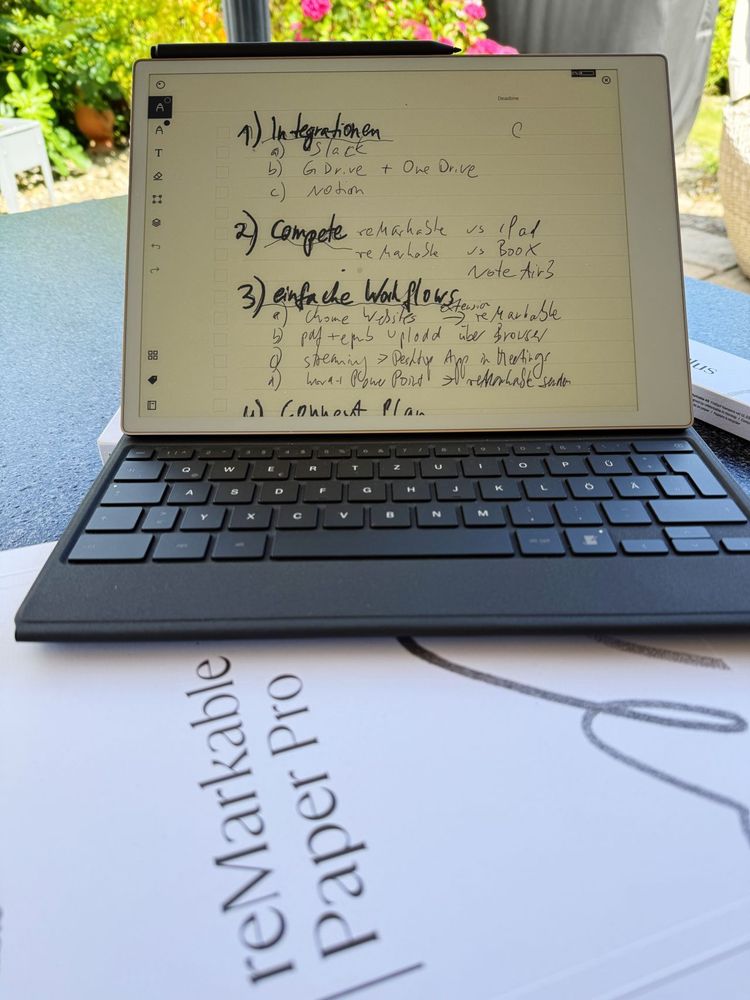 Deadline
1) Integrationen
a) Slack
b) G Drive + One Drive
c) Notion
2) Compete reMarkable vs iPad
reMarkable vs BOOX
Note Air3
3) einfache Workflows
a) Chrome Websites extension → reMarkable
b) pdf + epub upload über Browser
c) streaming → Desktop App in Meetings
d) Word + Power Point → reMarkable senden
4) Connect Plan
Q W E R T Z U I O P Ü
A S D F G H J K L Ö Ä
Y X C V B N M
reMarkable
Paper Pro